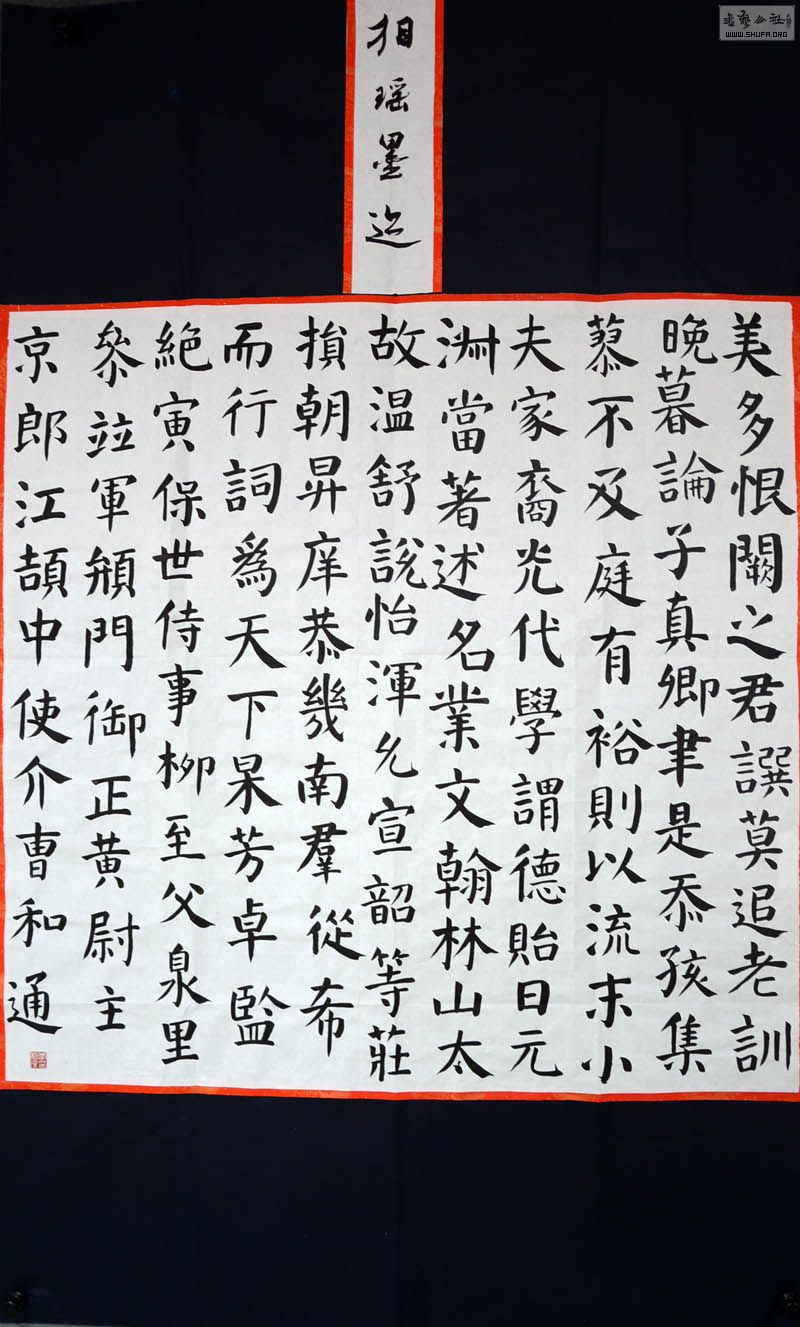 瑶墨迹
美多恨闕之君譔莫追老訓
晚暮論子真卿聿是忝孩集
慕不及庭有裕則以流末小
夫家裔光代學謂德貽日元
洲當著述名業文翰林山太
故温舒說怡渾允宣韶等莊
損朝昇庠恭幾南羣從希
而行詞為天下杲芳卓監
絕寅保世侍事柳至父泉里
叅竝軍頍門御正黄尉主
京郎江頡中使介曹和通
WWW.SHUFA.ORG